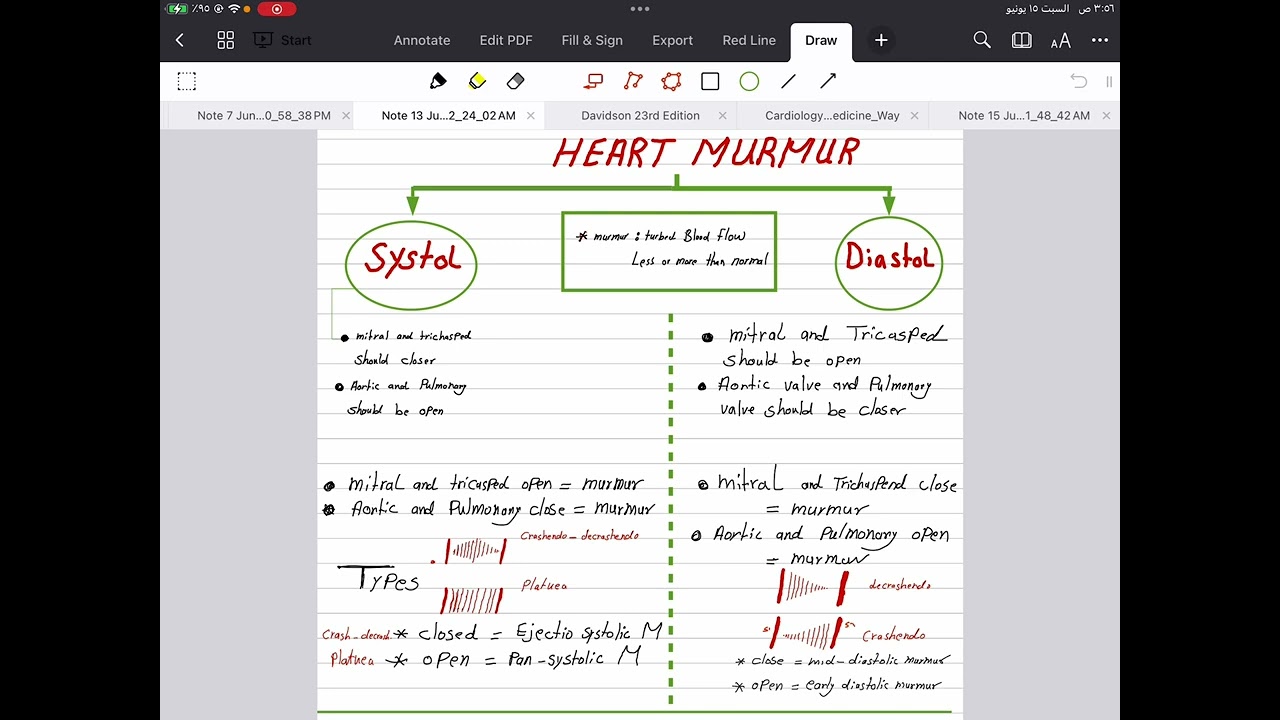 ٪٩٥
٣:٥٦ ص السبت ١٥ يونيو
Start
Annotate
Edit PDF
Fill & Sign
Export
Red Line
Draw
AA
Note 7 Jun...0_58_38 PM
Note 13 Ju...2_24_02 AM
Davidson 23rd Edition
Cardiology...edicine_Way
Note 15 Ju...1_48_42 AM
HEART MURMUR
Systol
* murmur : turbed Blood Flow
Less or more than normal
Diastol
mitral and trichasped
should closer
Aortic and Pulmonary
should be open
mitral and Tricasped
should be open
Aortic valve and Pulmonary
valve should be closer
mitral and tricasped open = murmur
Aortic and Pulmonary close = murmur
Crashendo - decrashendo
Types
Platuea
Crash-decrash * closed = Ejectio systolic M
Platuea * open = Pan-systolic M
mitral and Trichuspend close
= murmur
Aortic and Pulmonary open
= murmur
decrashendo
Crashendo
* close = mid-diastolic murmur
* open = early diastolic murmur